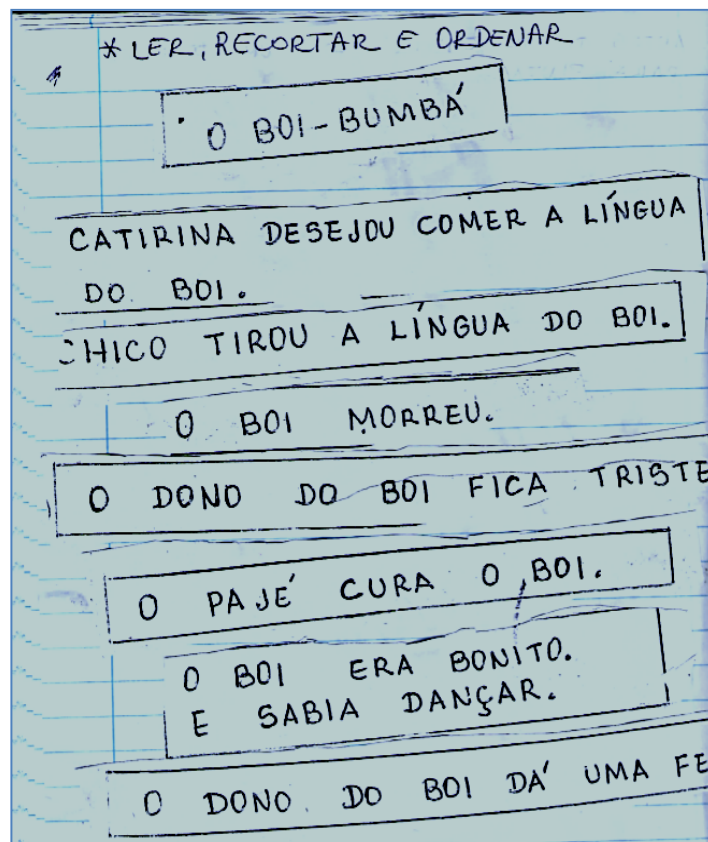 * LER, RECORTAR E ORDENAR
O BOI-BUMBÁ
CATIRINA DESEJOU COMER A LÍNGUA
DO BOI.
CHICO TIROU A LÍNGUA DO BOI.
O BOI MORREU.
O DONO DO BOI FICA TRISTE
O PAJÉ CURA O BOI.
O BOI ERA BONITO.
E SABIA DANÇAR.
O DONO DO BOI DÁ UMA FE